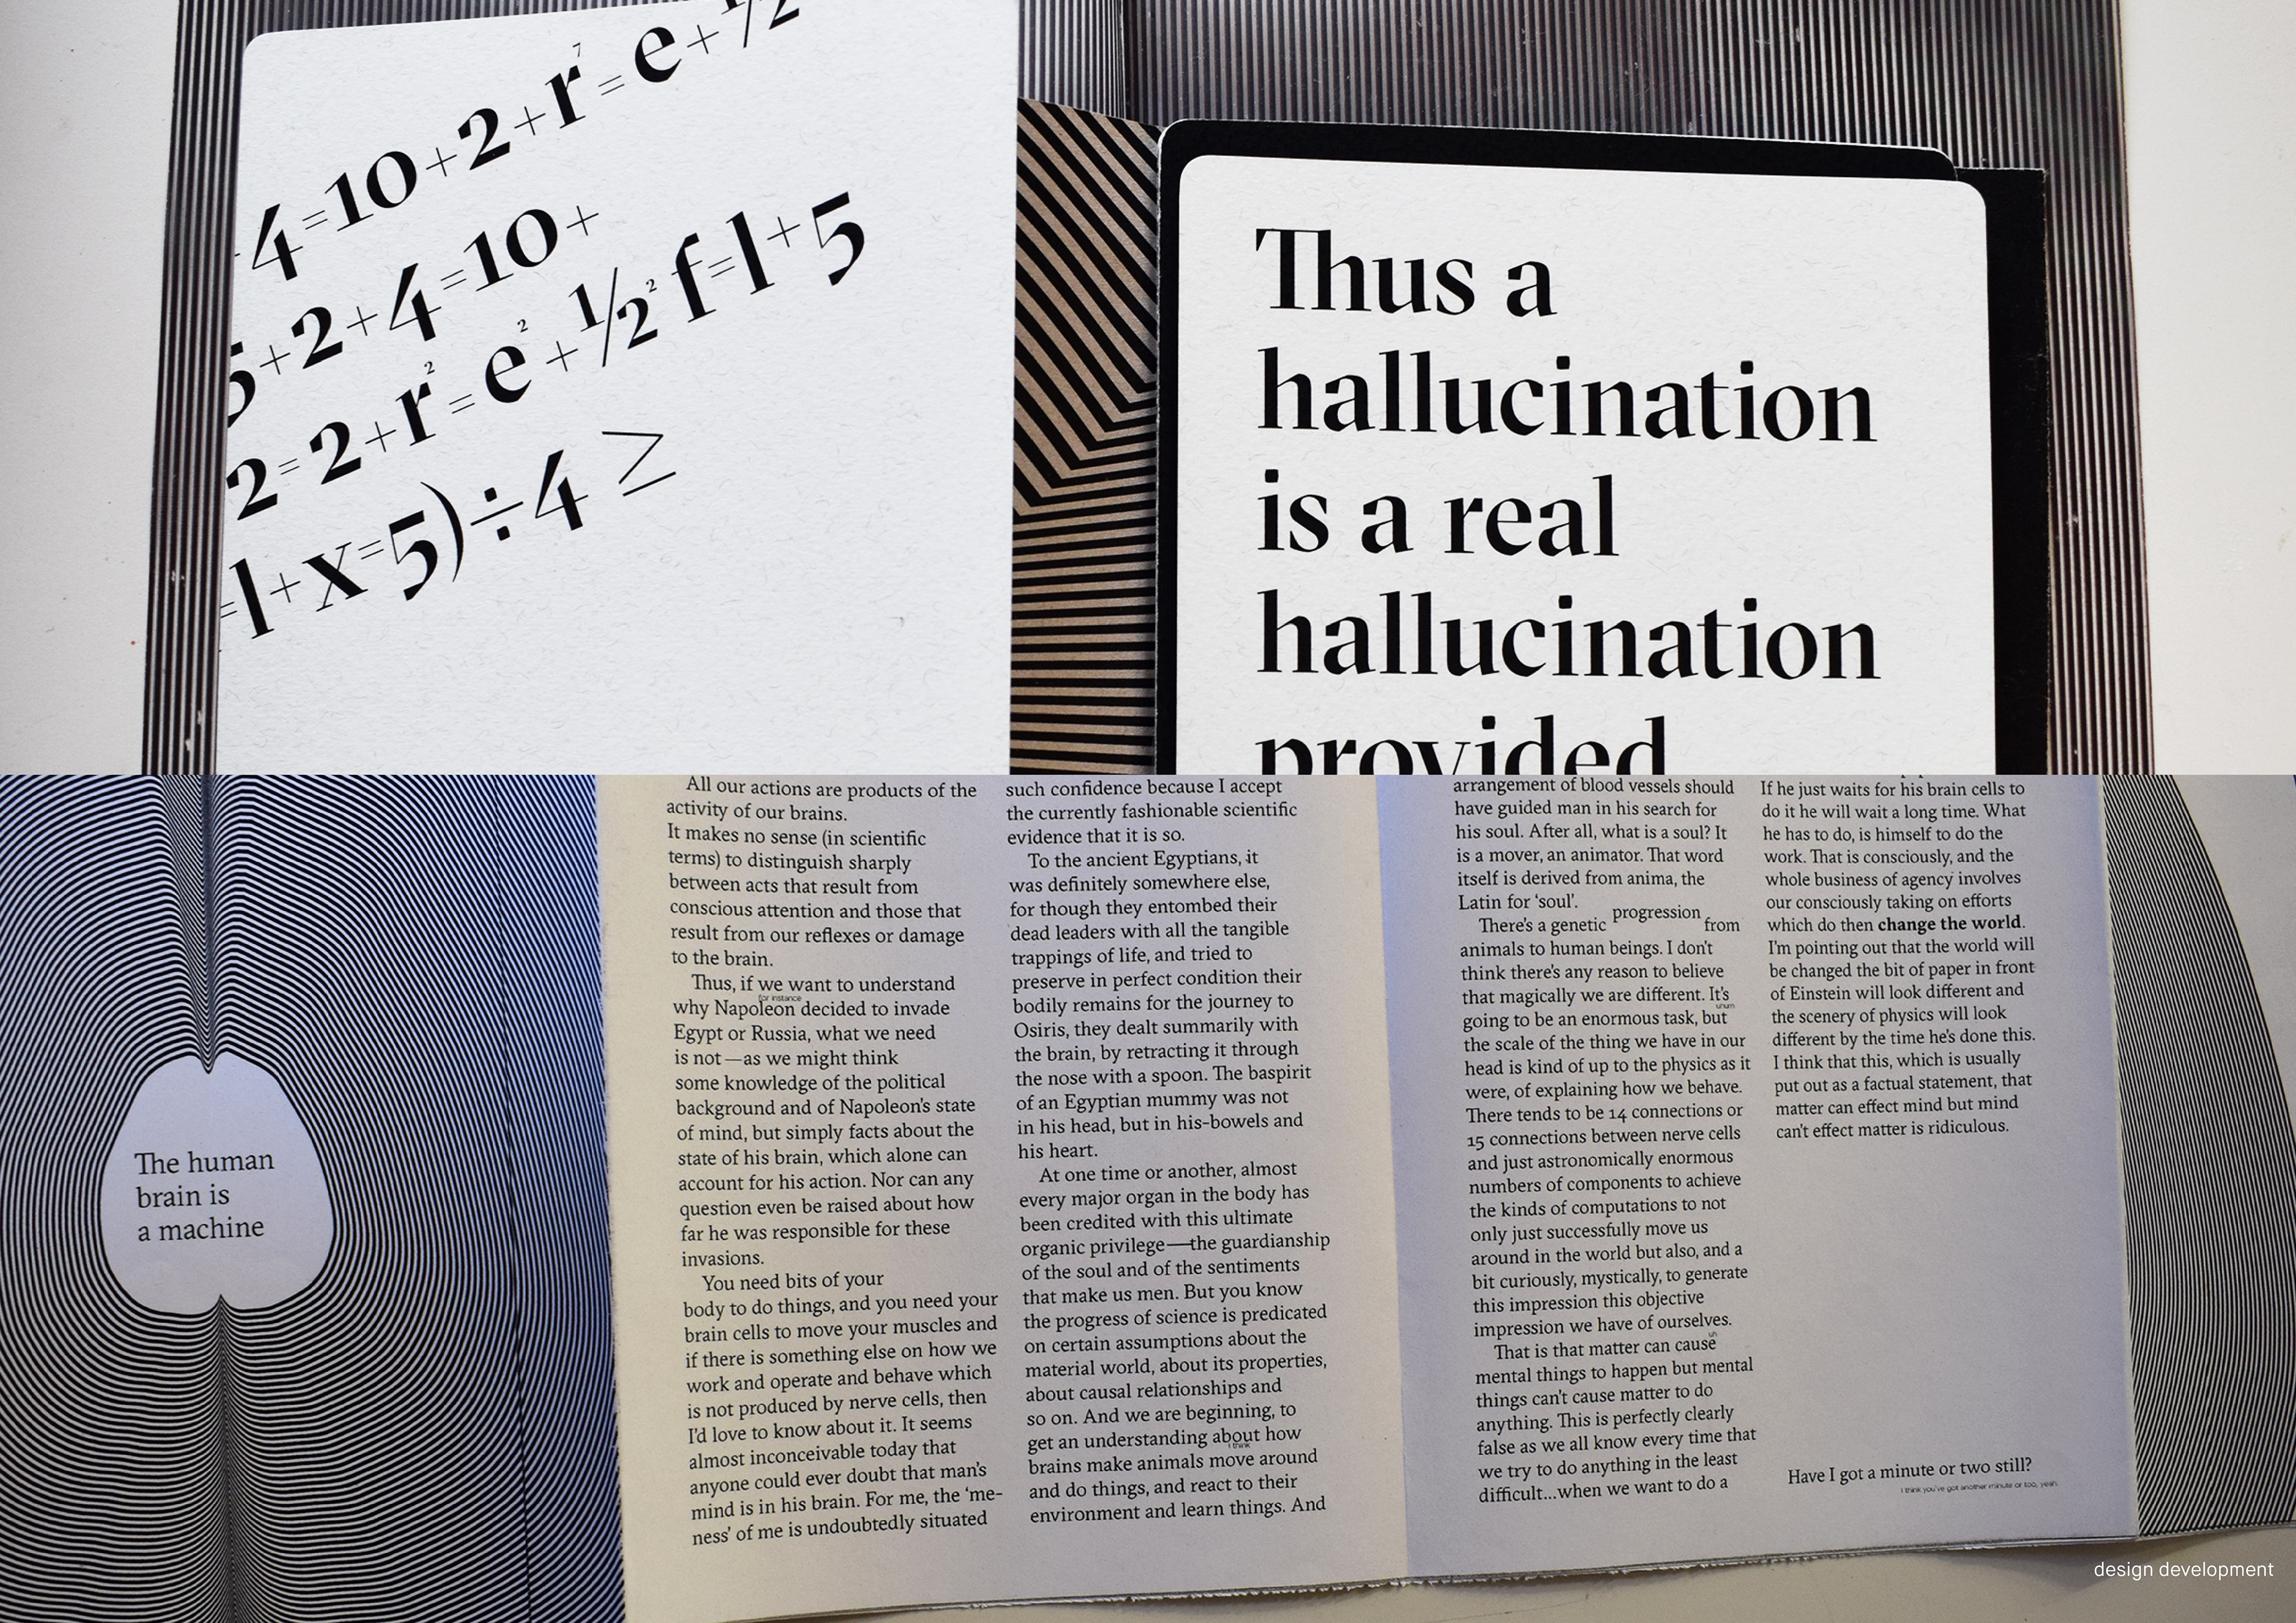 4=10+2+r⁷=e+½
5+2+4=10+
2=2+r²=e²+½² f=l+5
=l+x=5)÷4 ≥
Thus a
hallucination
is a real
hallucination
provided
The human
brain is
a machine
All our actions are products of the
activity of our brains.
It makes no sense (in scientific
terms) to distinguish sharply
between acts that result from
conscious attention and those that
result from our reflexes or damage
to the brain.
Thus, if we want to understand
for instance
why Napoleon decided to invade
Egypt or Russia, what we need
is not—as we might think
some knowledge of the political
background and of Napoleon's state
of mind, but simply facts about the
state of his brain, which alone can
account for his action. Nor can any
question even be raised about how
far he was responsible for these
invasions.
You need bits of your
body to do things, and you need your
brain cells to move your muscles and
if there is something else on how we
work and operate and behave which
is not produced by nerve cells, then
I'd love to know about it. It seems
almost inconceivable today that
anyone could ever doubt that man's
mind is in his brain. For me, the 'me-
ness' of me is undoubtedly situated
such confidence because I accept
the currently fashionable scientific
evidence that it is so.
To the ancient Egyptians, it
was definitely somewhere else,
for though they entombed their
dead leaders with all the tangible
trappings of life, and tried to
preserve in perfect condition their
bodily remains for the journey to
Osiris, they dealt summarily with
the brain, by retracting it through
the nose with a spoon. The baspirit
of an Egyptian mummy was not
in his head, but in his-bowels and
his heart.
At one time or another, almost
every major organ in the body has
been credited with this ultimate
organic privilege—the guardianship
of the soul and of the sentiments
that make us men. But you know
the progress of science is predicated
on certain assumptions about the
material world, about its properties,
about causal relationships and
so on. And we are beginning, to
get an understanding about how
I think
brains make animals move around
and do things, and react to their
environment and learn things. And
arrangement of blood vessels should
have guided man in his search for
his soul. After all, what is a soul? It
is a mover, an animator. That word
itself is derived from anima, the
Latin for 'soul'.
There's a genetic progression from
animals to human beings. I don't
think there's any reason to believe
that magically we are different. It's
uhum
going to be an enormous task, but
the scale of the thing we have in our
head is kind of up to the physics as it
were, of explaining how we behave.
There tends to be 14 connections or
15 connections between nerve cells
and just astronomically enormous
numbers of components to achieve
the kinds of computations to not
only just successfully move us
around in the world but also, and a
bit curiously, mystically, to generate
this impression this objective
impression we have of ourselves.
uh
That is that matter can cause
mental things to happen but mental
things can't cause matter to do
anything. This is perfectly clearly
false as we all know every time that
we try to do anything in the least
difficult...when we want to do a
If he just waits for his brain cells to
do it he will wait a long time. What
he has to do, is himself to do the
work. That is consciously, and the
whole business of agency involves
our consciously taking on efforts
which do then change the world.
I'm pointing out that the world will
be changed the bit of paper in front
of Einstein will look different and
the scenery of physics will look
different by the time he's done this.
I think that this, which is usually
put out as a factual statement, that
matter can effect mind but mind
can't effect matter is ridiculous.
Have I got a minute or two still?
I think you've got another minute or too, yeah.
design development